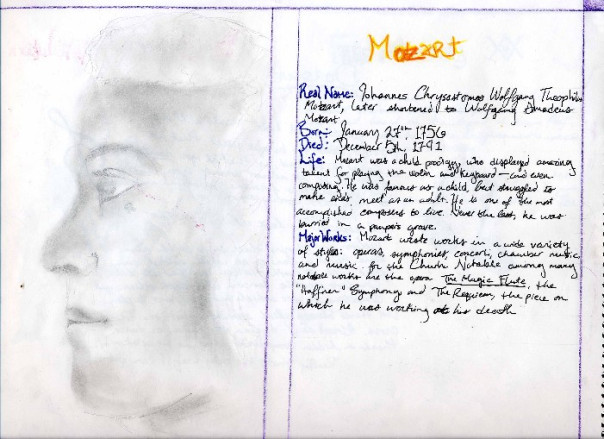 Mozart
Real Name: Johannes Chrysostomos Wolfgang Theophilus
Mozart, later shortened to Wolfgang Amadeus
Mozart.
Born: January 27th, 1756
Died: December 5th, 1791
Life: Mozart was a child prodigy, who displayed amazing
talent for playing the violin and keyboard - and even
composing. He was famous as a child, but struggled to
make ends meet as an adult. He is one of the most
accomplished composers to live. Never the less, he was
burried in a pauper's grave.
Major Works: Mozart wrote works in a wide variety
of styles: operas, symphonies, concerti, chamber music,
and music for the Church. Notable among many
notable works are the opera The Magic Flute, the
"Haffner" Symphony and The Requiem, the piece on
which he was working at his death